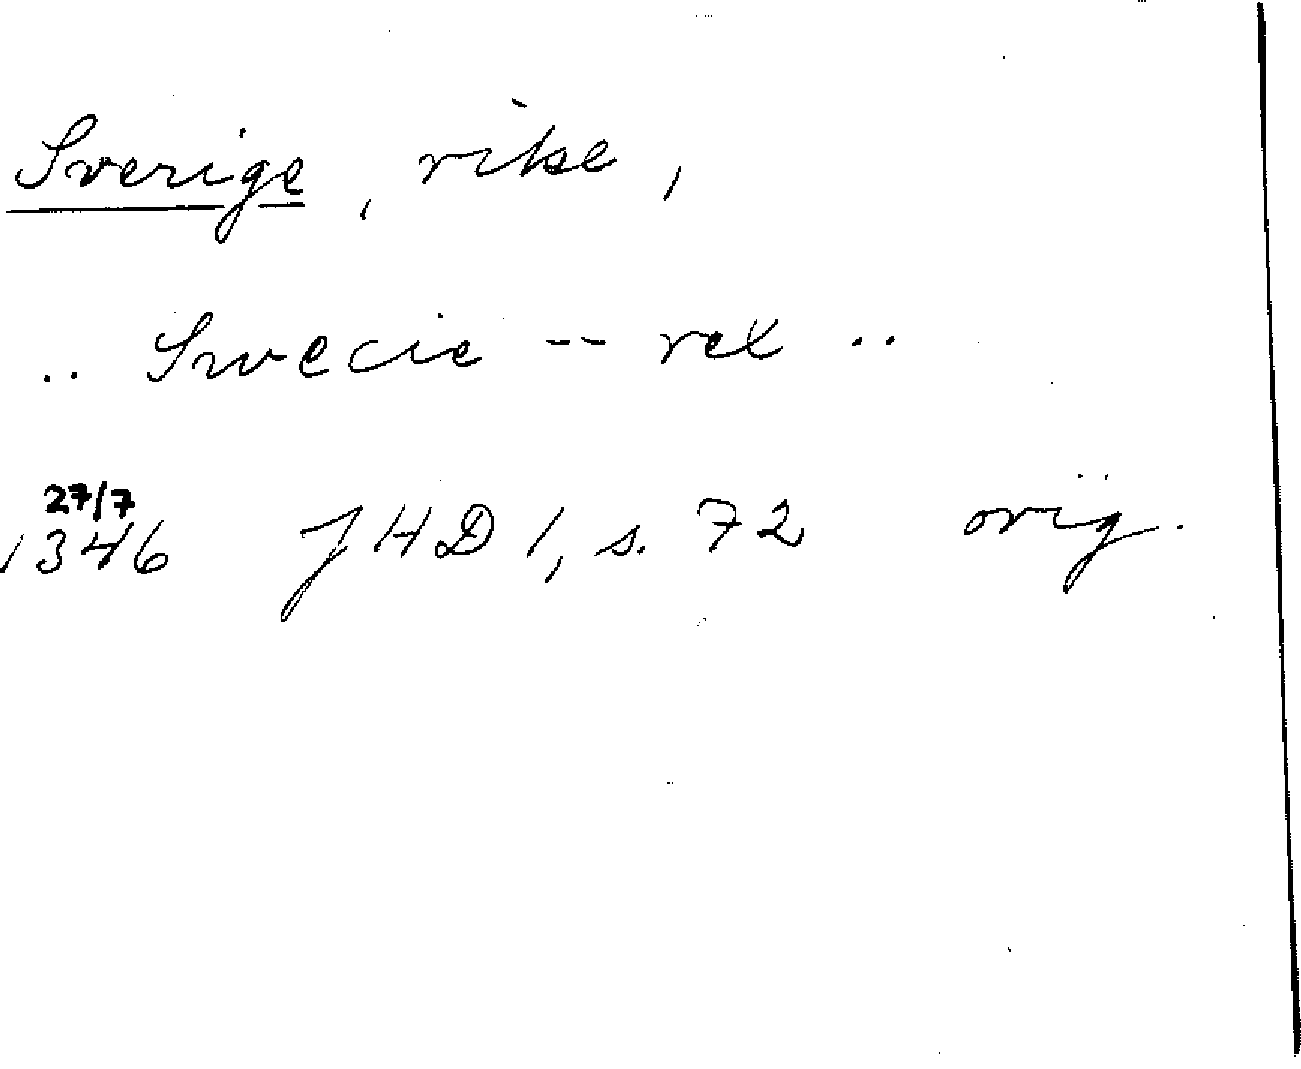 Sverige, rike,
.. Swecie -- rex ..
27/7
1346 JHD 1, s. 72 orig.